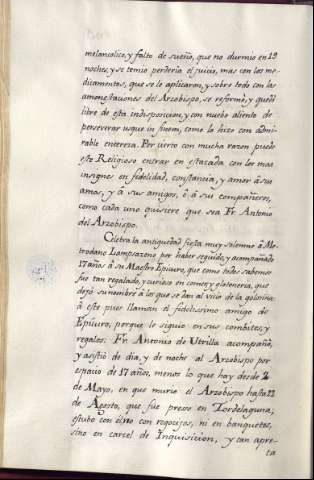 melancolico, y falto de sueño, que no durmio en 19
noches, y se temio perderia el juicio, mas con los me-
dicamentos, que se le aplicaron, y sobre todo con las
amonestaciones del Arzobispo, se reformò, y quedò
libre de esta indisposicion, y con nuebo aliento de
perseverar usque in finem, como lo hizo con admi-
rable entereza. Por cierto con mucha razon puede
este Religioso entrar en estacada con los mas
insignes en fidelidad, constancia, y amor â sus
amos, y â sus amigos, ô â sus compañeros,
como cada uno quisiere que sea Fr. Antonio
del Arzobispo.
Celebra la antiguedad fiesta muy solemne â Me-
trodano Lampsazeno por haber seguido, y acompañado
17 años â su Maestro Epicuro, que como todos sabemos
fue tan regalado, y curioso en comer, y glotoneria, que
dejò su nombre â los que se dan al vicio de la golosina:
â este pues llaman el fidelissimo amigo de
Epicuro, porque le siguio en sus combites, y
regalos. Fr. Antonio de Utrilla acompañò,
y asistiò de dia, y de noche al Arzobispo por
espacio de 17 años, menos lo que hay desde 2
de Mayo, en que murio el Arzobispo hasta 22
de Agosto, que fue preso en Tordelaguna;
estubo con el, no con regocijos, ni en banquetes,
sino en carcel de Inquisicion, y tan apre-
ta